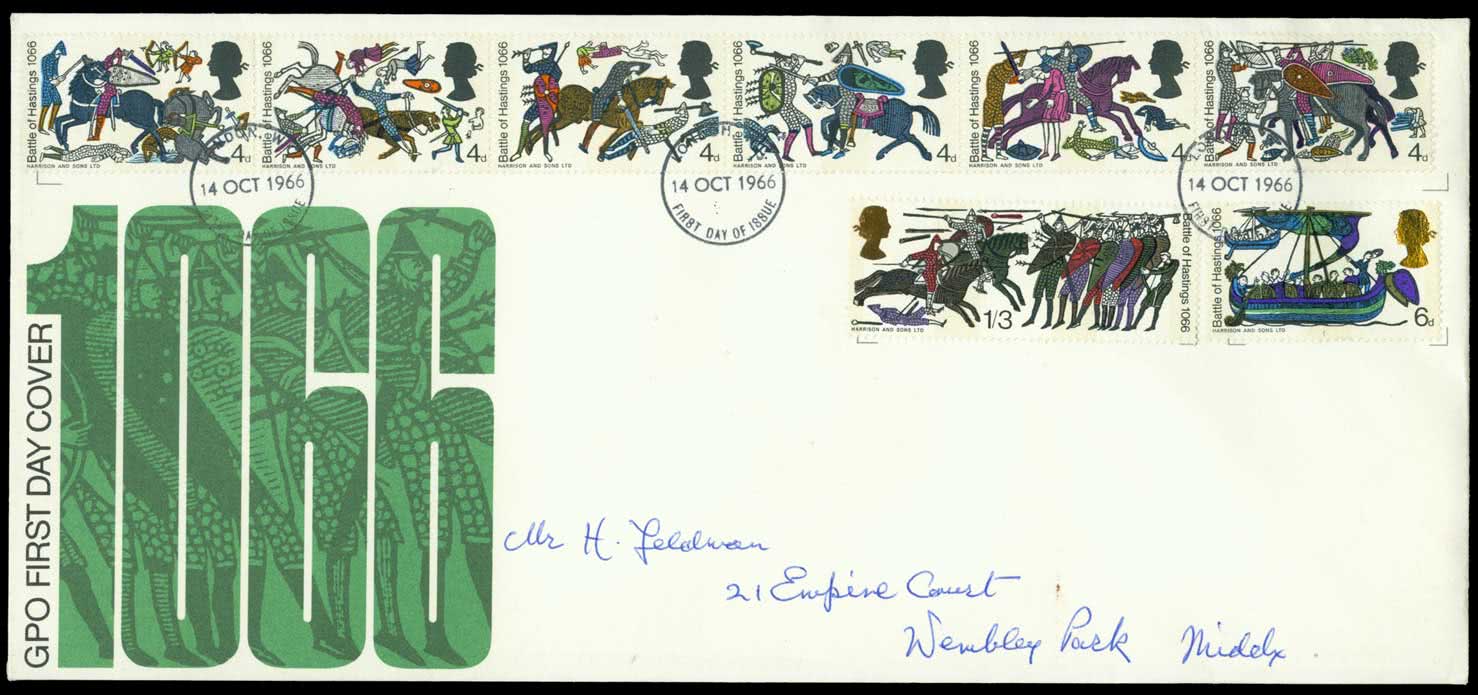 Battle of Hastings 1066
4d
HARRISON AND SONS LTD
Battle of Hastings 1066
4d
HARRISON AND SONS LTD
Battle of Hastings 1066
4d
HARRISON AND SONS LTD
Battle of Hastings 1066
4d
HARRISON AND SONS LTD
Battle of Hastings 1066
4d
HARRISON AND SONS LTD
Battle of Hastings 1066
4d
HARRISON AND SONS LTD
14 OCT 1966
14 OCT 1966
FIRST DAY OF ISSUE
14 OCT 1966
Battle of Hastings 1066
1/3
HARRISON AND SONS LTD
Battle of Hastings 1066
6d
HARRISON AND SONS LTD
GPO FIRST DAY COVER
1066
Mr H. Feldman
21 Empire Court
Wembley Park Middx